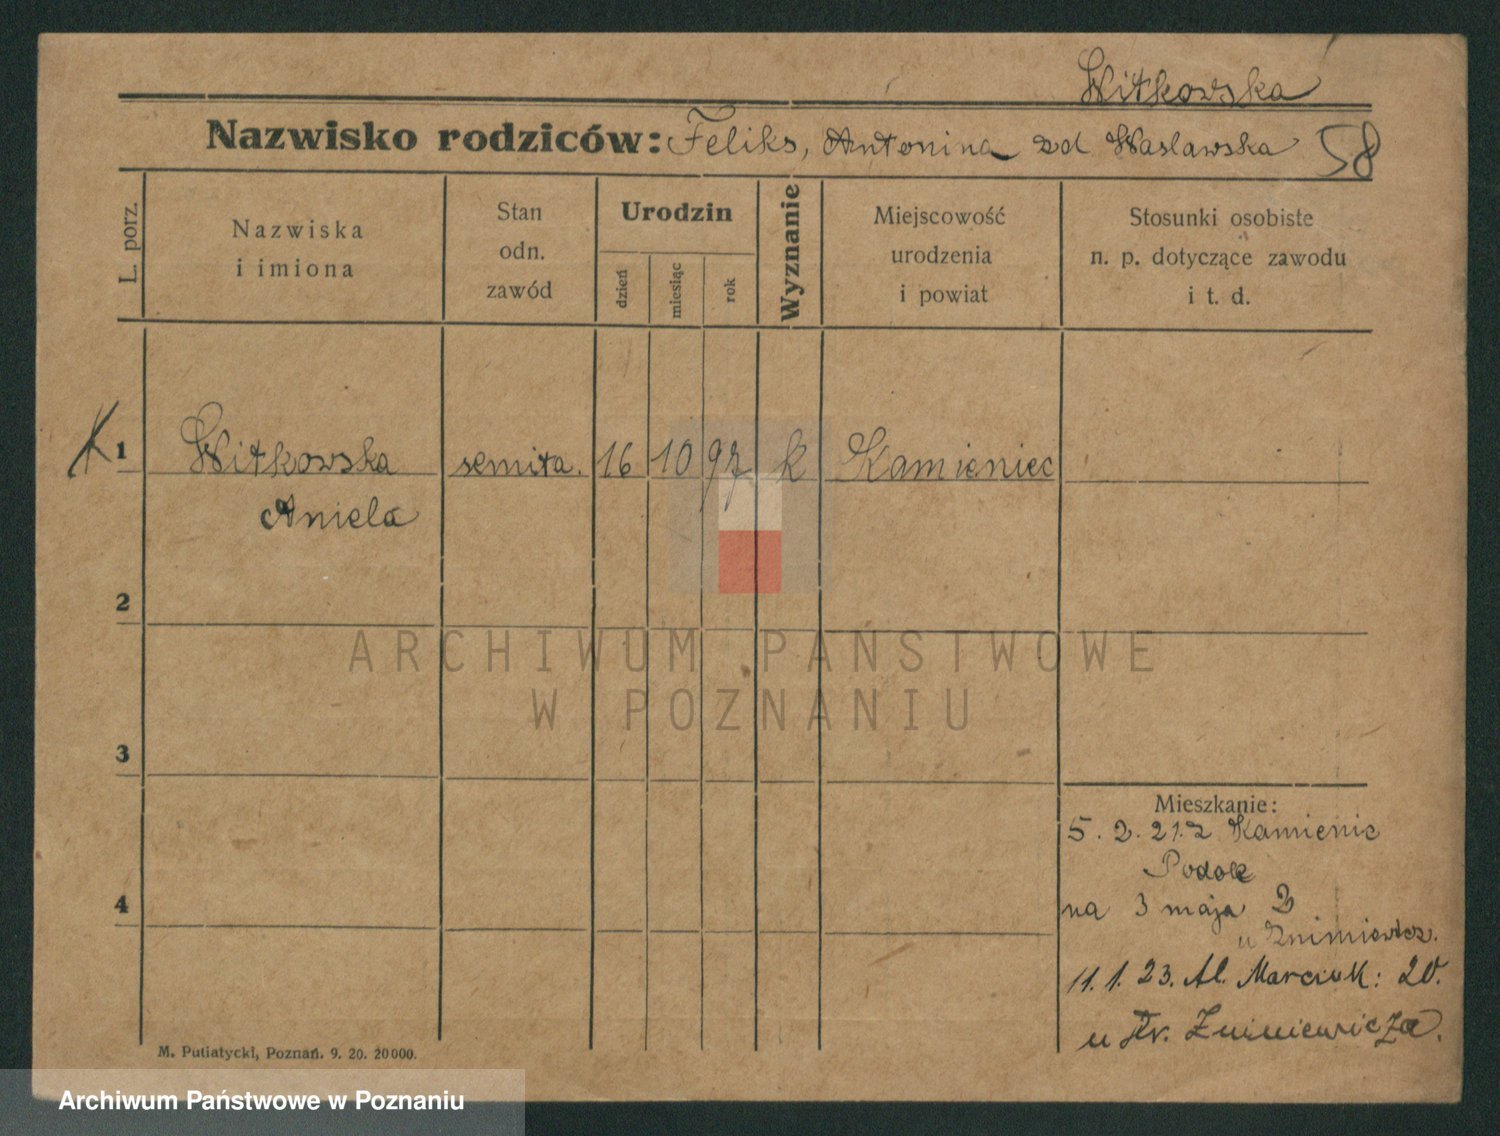 Witkowska
Nazwisko rodziców: Feliks, Antonina zd Waslawska 58
L. porz.
Nazwiska
i imiona
Stan
odn.
zawód
Urodzin
dzień
miesiąc
rok
Wyznanie
Miejscowość
urodzenia
i powiat
Stosunki osobiste
n. p. dotyczące zawodu
i t. d.
K 1 Witkowska semita. 16 10 97 k Kamieniec
Aniela
2
ARCHIWUM PAŃSTWOWE
W POZNANIU
3
Mieszkanie:
5. 2. 21. z Kamienic
Podole
4
na 3 maja 2
u
11. 1. 23. Al. Marcink: 20.
u Fr. Zniniewicza.
M. Putiatycki, Poznań. 9. 20. 20000.
Archiwum Państwowe w Poznaniu